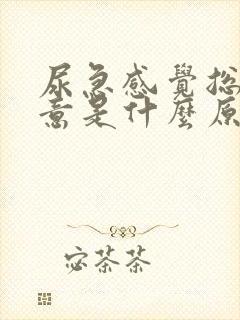 尿急感覺總
意是什麼原
宓茶茶